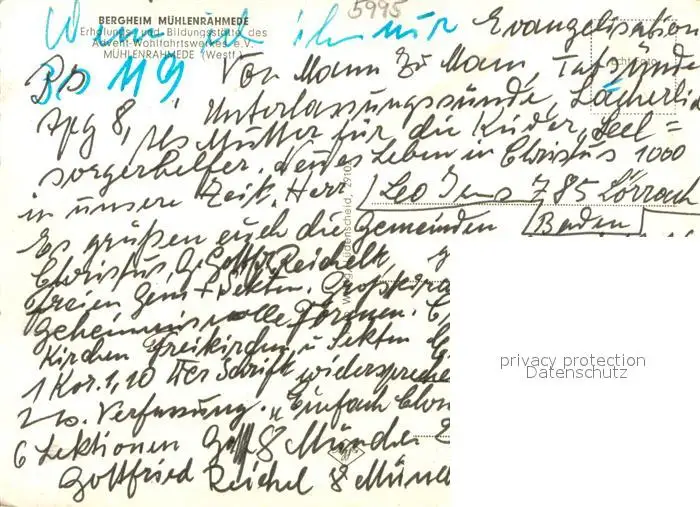 5995
BERGHEIM MÜHLENRAHMEDE
Erholungs- und Bildungsstätte des
Advent-Wohlfahrtswerkes e.V.
MÜHLENRAHMEDE (Westf.)
ich nur Evangelisation
Ps 119 Von Mann zu Mann, Tatsünde
Echt Foto
Apg 8, Unterlassungssünde,
Mutter für die Kinder, Seel=
sorgerhelfer. Neues Leben in Christus 1000
in unsere Zeit. Herr Leo Jens 785 Lörrach
Es grüßen euch die Gemeinden Baden
Christus, G. Gottfr. Reichelt,
freien Gem + Sekten.
Geheimnisvolle Formen.
Kirchen Freikirchen u Sekten
1 Kor. 1,10 der Schrift widerspreche
Verfassung. Einfach
6 Lektionen 8 Münche
Gottfried Reichel 8 Münc
Lüdenscheid, 2910
privacy protection
Datenschutz